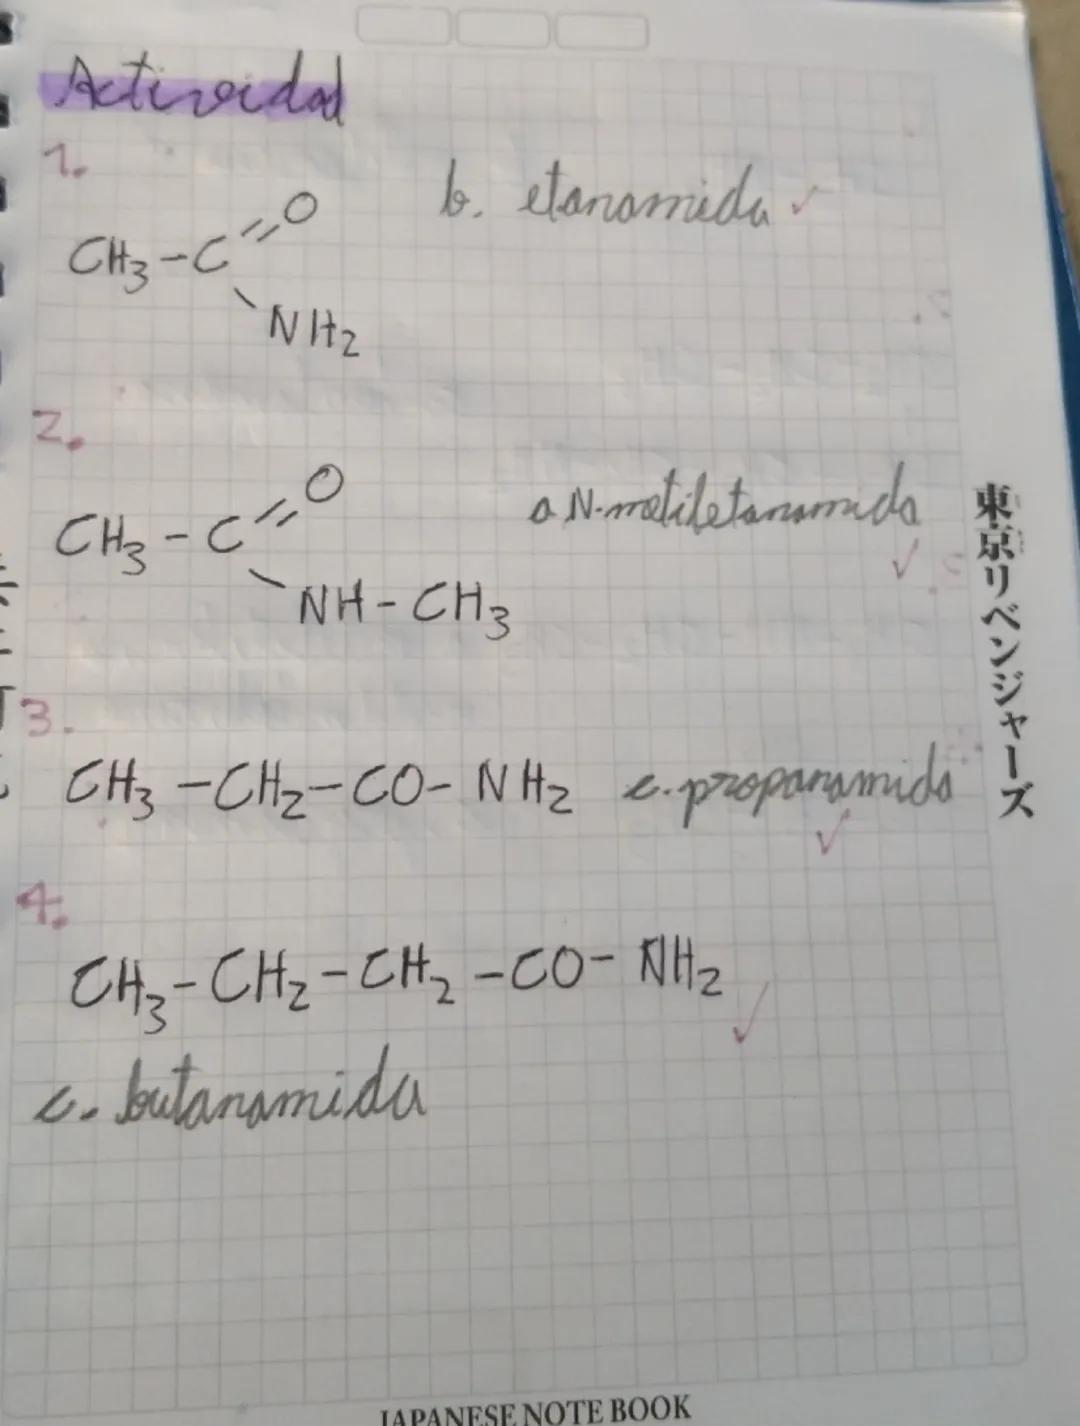 Actividad
1.
b. etanamida ✓
CH₃-C=O
NH₂
2.
a N-metiletanamida ✓
CH₃-C=O
NH-CH₃
3.
CH₃-CH₂-CO-NH₂ c. propanamida ✓
4.
CH₃-CH₂-CH₂-CO-NH₂ ✓
c. butanamida
東京リベンジャーズ
JAPANESE NOTE BOOK